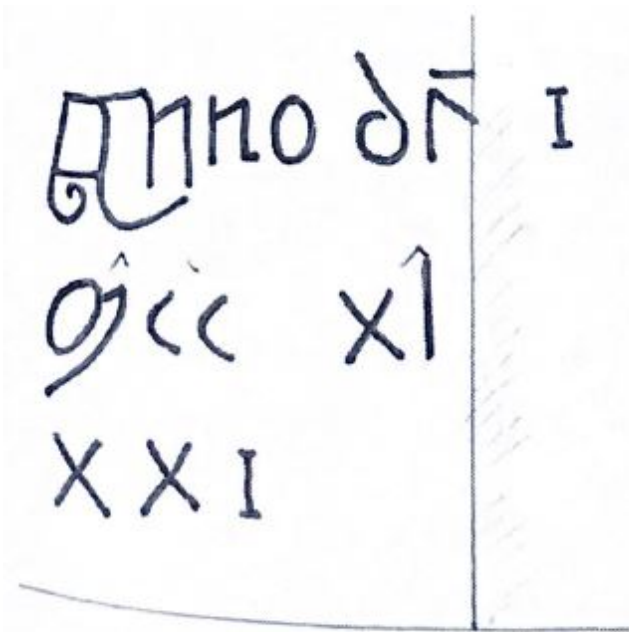 Anno dn̄ I
cc xl
XXI